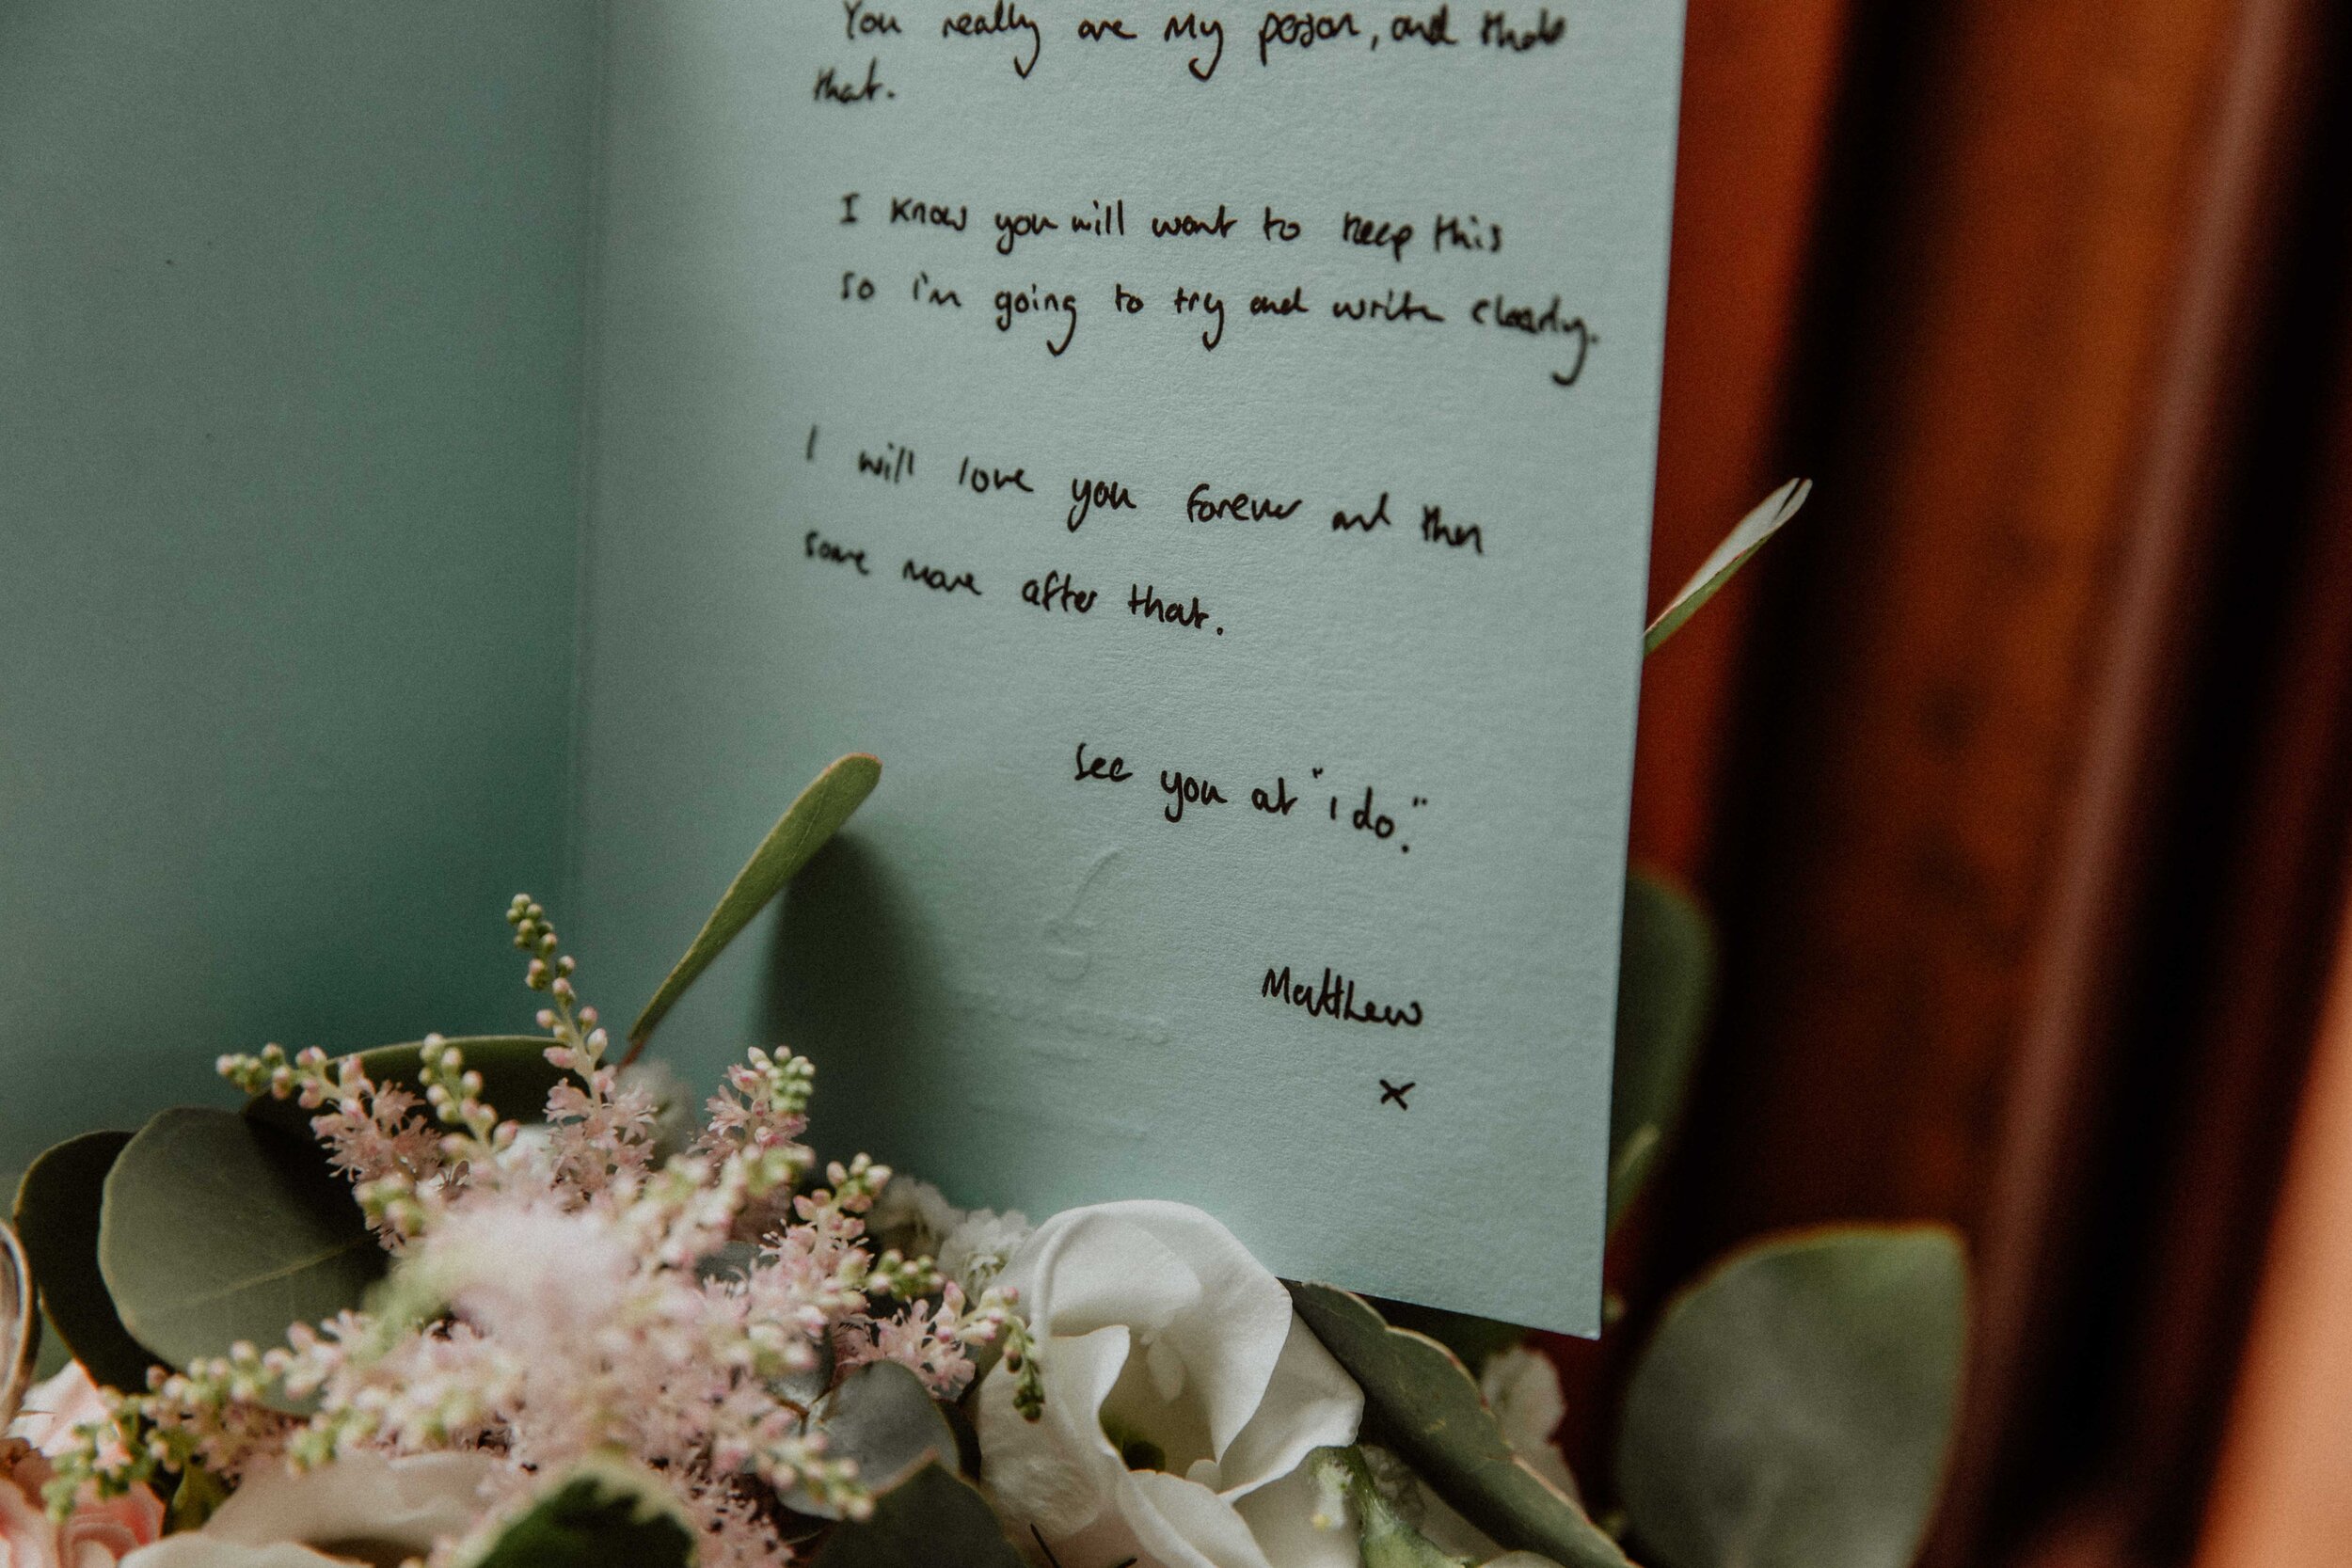 You really are my person, and thats
that.
I know you will want to keep this
so i'm going to try and write clearly.
I will love you forever and then
some more after that.
see you at "I do."
Matthew
x